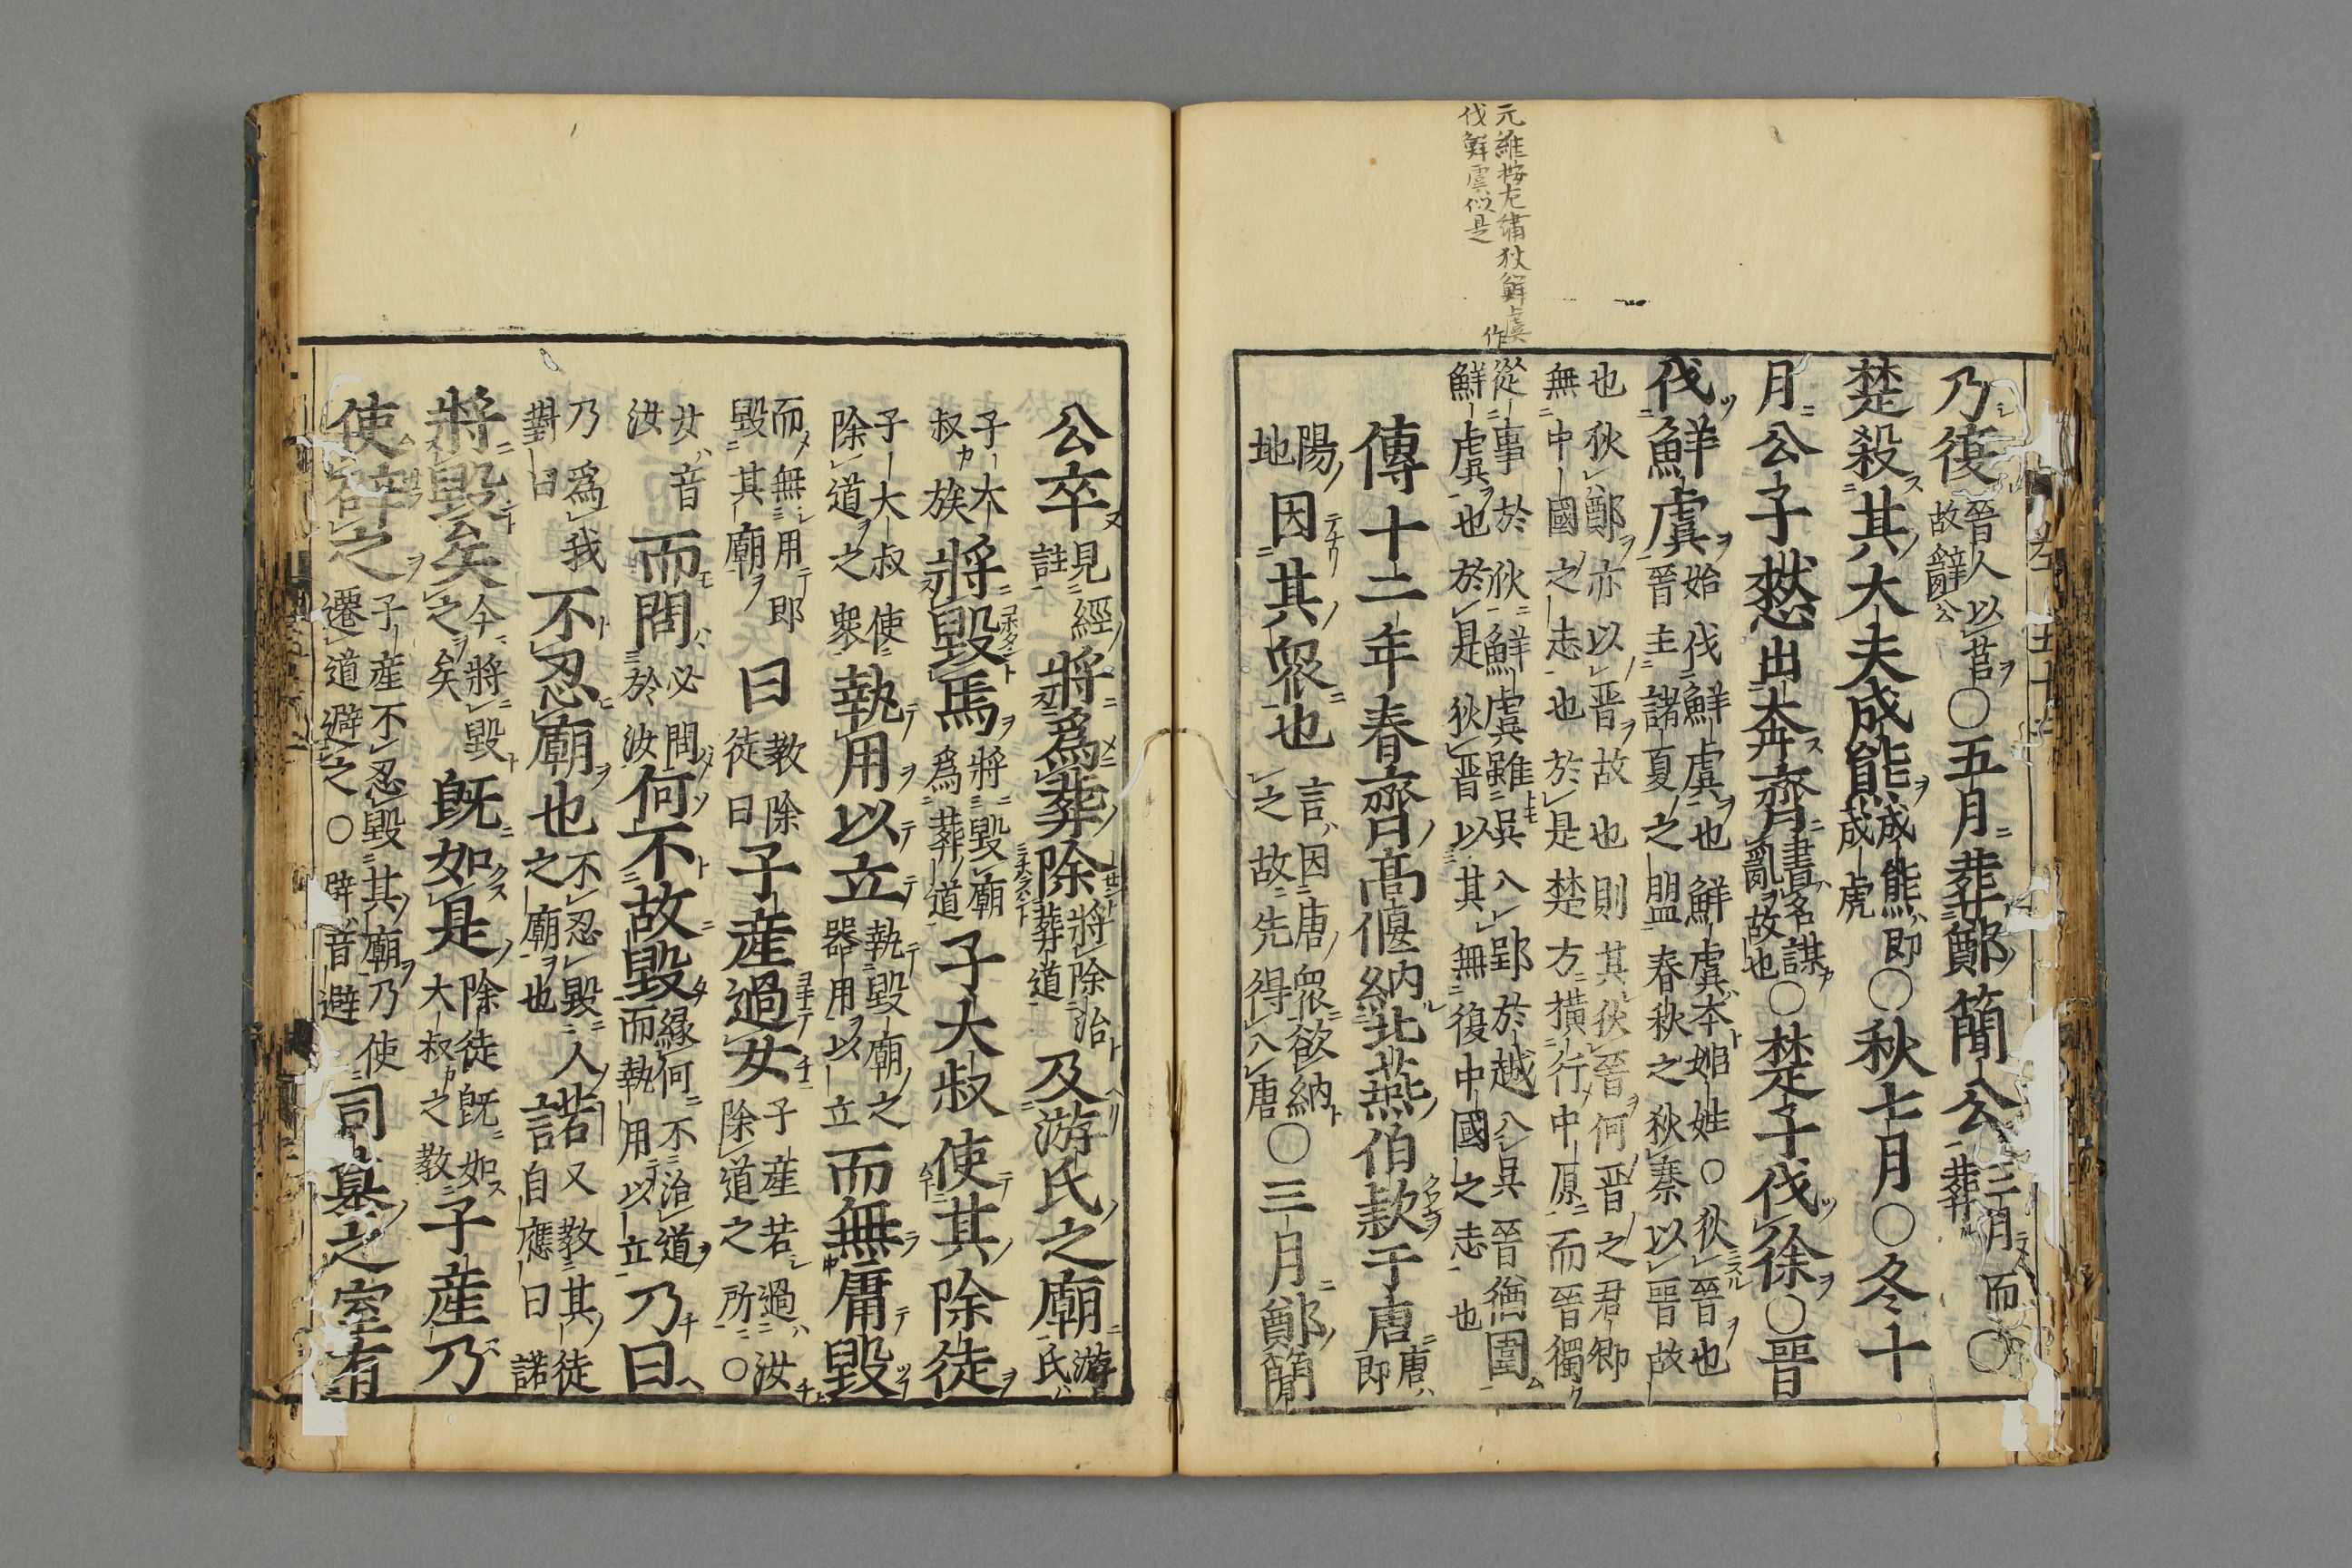 元維按左繡狄鮮虞作
伐鮮虞似是
乃復晉人以莒故辭公○五月葬鄭簡公三月而葬○
楚殺其大夫成熊成熊即成虎○秋七月○冬十
月公子憖出奔齊書名謀亂故也○楚子伐徐○晉
伐鮮虞始伐鮮虞也鮮虞本姬姓○狄晉也晉主諸夏之盟春秋之狄秦以晉故
也狄鄭亦以晉故也則其狄晉何晉之君卿無中國之志也於是楚方橫行中原而晉獨
從事於狄鮮虞雖吳入郢於越入吳晉猶圍鮮虞也於是狄晉以其無復中國之志也
傳十二年春齊高偃納北燕伯款于唐唐即
陽地因其衆也言因唐衆欲納之故先得入唐○三月鄭簡
公卒見經註將爲葬除將除治葬道及游氏之廟游氏
子大叔族將毀焉將毀廟爲葬道子大叔使其除徒
子大叔使除道之衆執用以立執毀廟之器用以立而無庸毀
而無用即毀其廟曰教除徒曰子產過女子產若過汝除道之所○
女音汝而問必問於汝何不故毀緣何不治道而執用以立乃曰
乃爲我對曰不忍廟也不忍毀人之廟也諾又教其徒自應曰諾
將毀矣今將毀之矣既如是除徒既如大叔之教子產乃
使辟之子產不忍毀其廟乃使遷道避之○辟音避司墓之室有